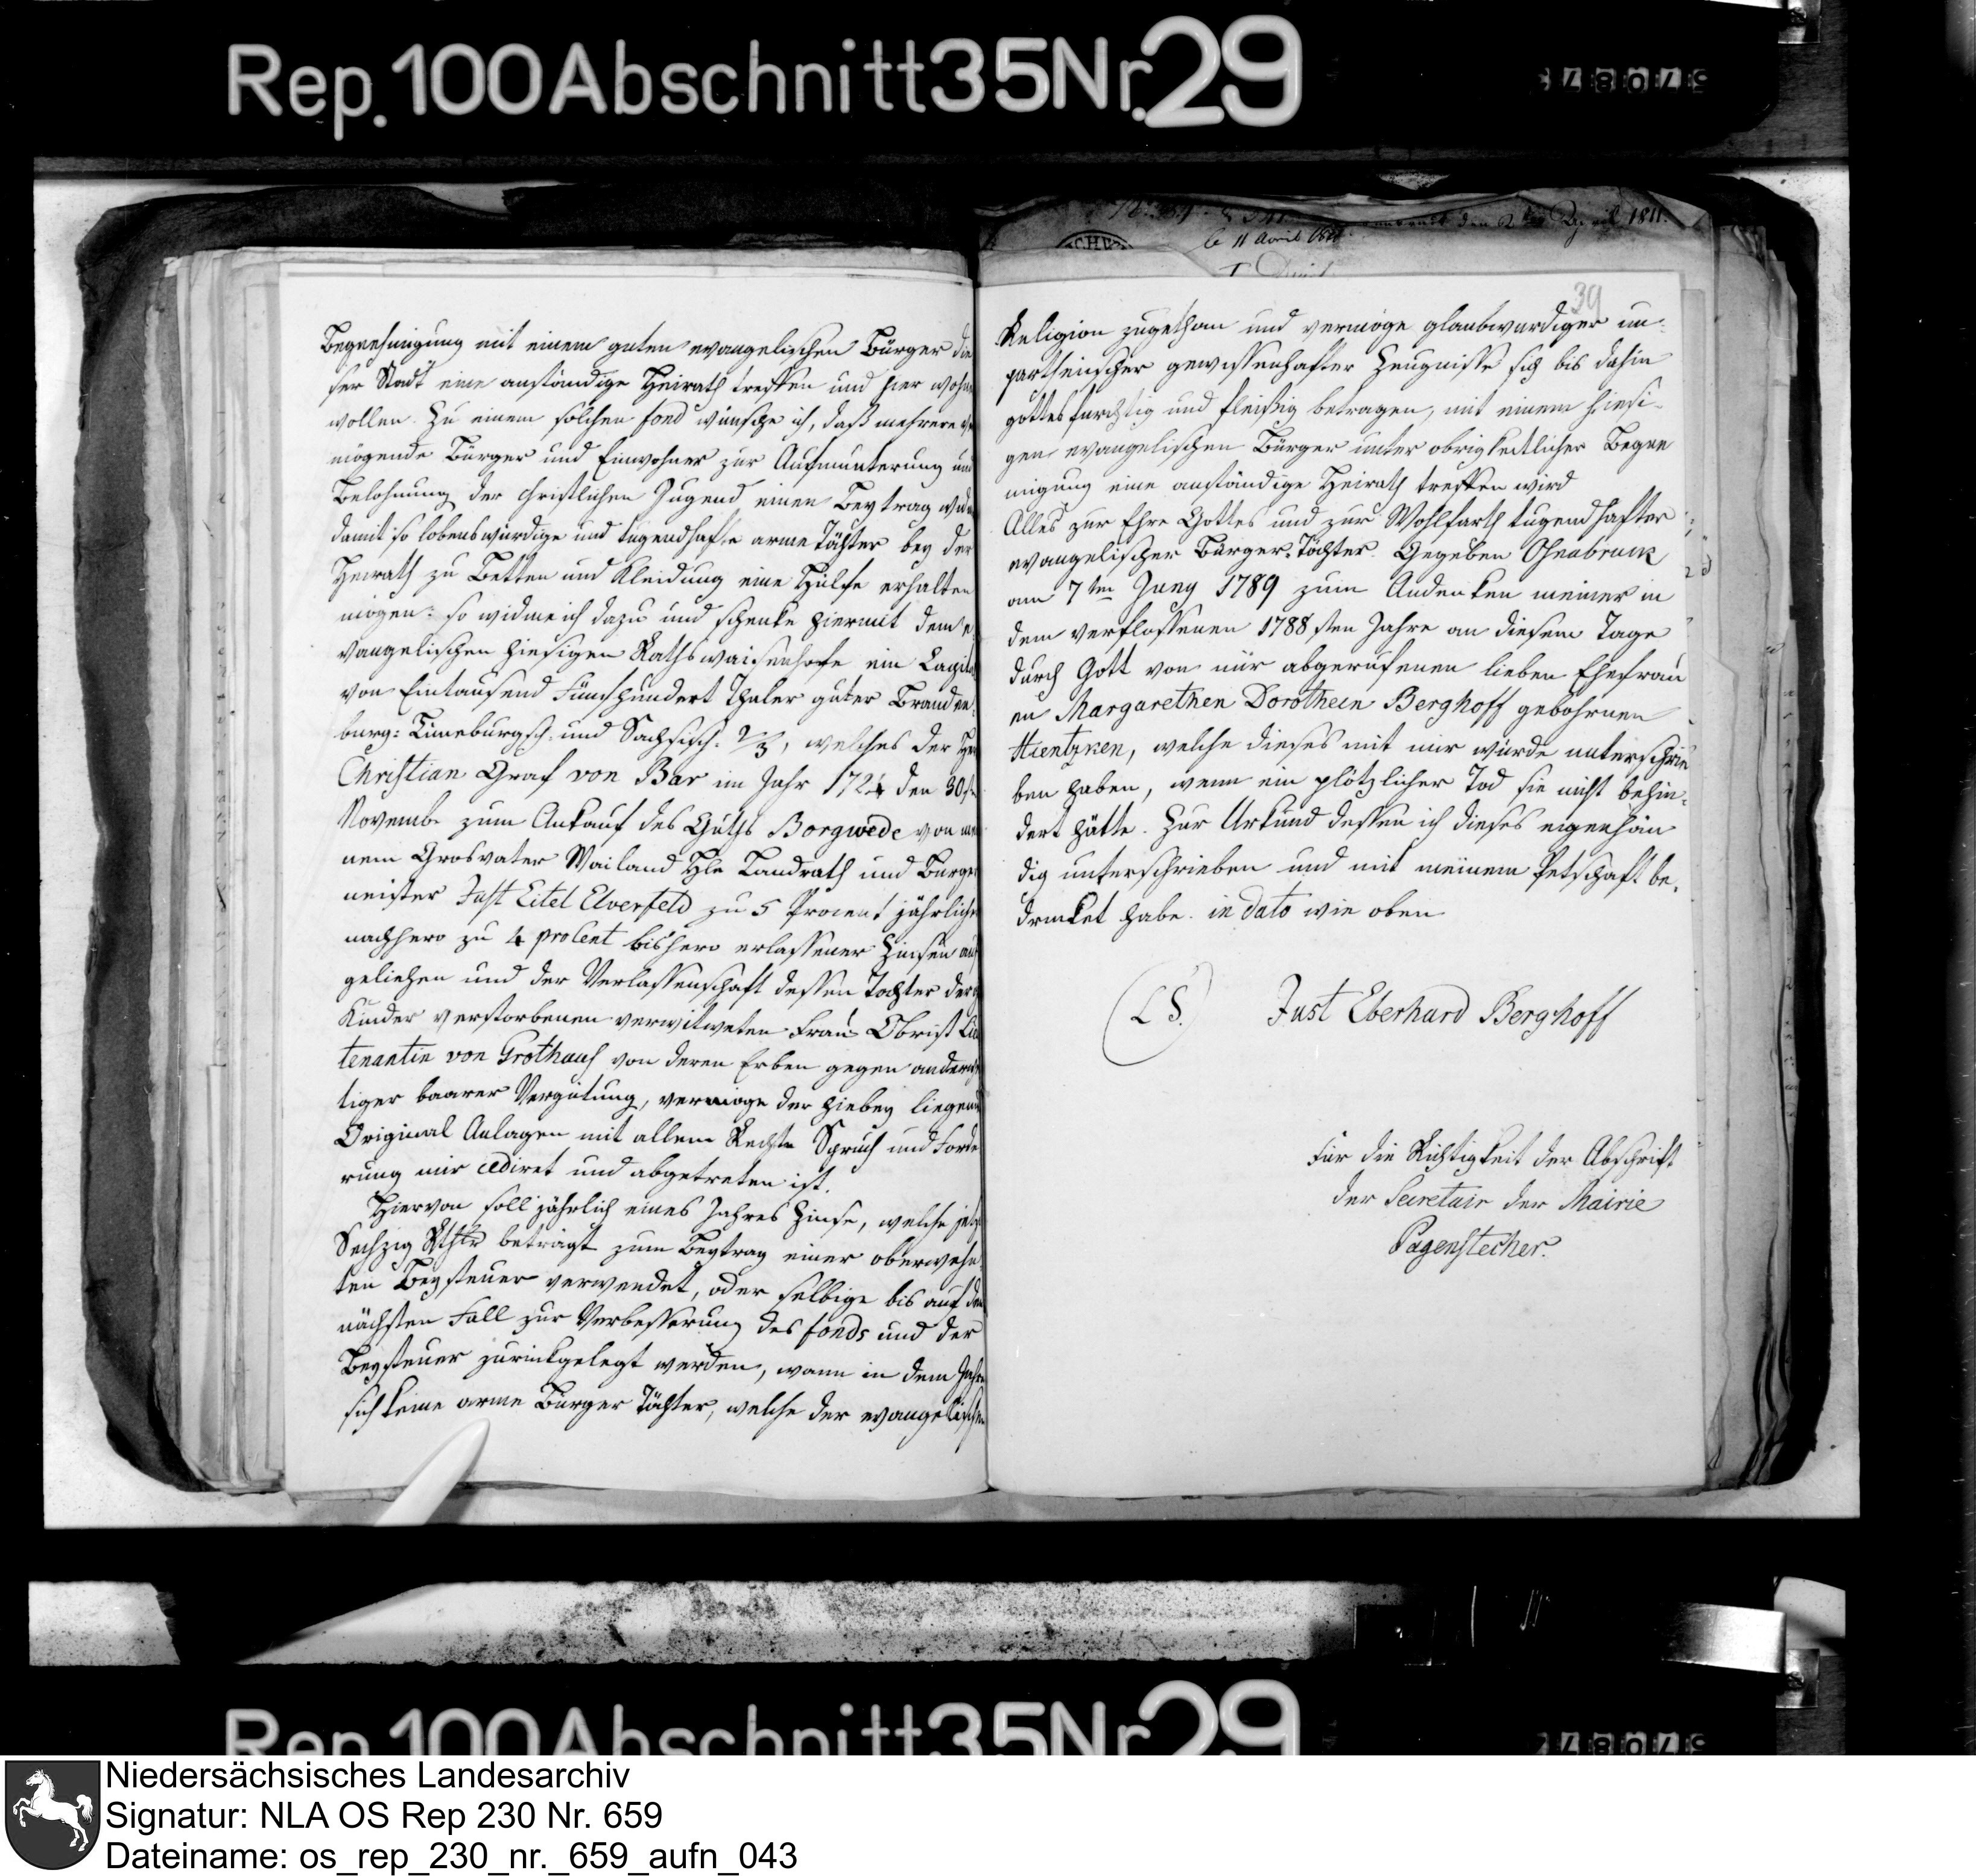 Rep. 100 Abschnitt 35 Nr. 29
Begnehmigung mit einem guten evangelischen Bürger die
ser Stadt eine anständige Heirath treffen und hier wohnen
wollen. Zu einem solchen fond wünsche ich, daß mehrere ver
mögende Bürger und Einwohner zur Aufmunterung und
Belohnung der christlichen Jugend einen Beytrag
damit so lobenswürdige und tugendhafte arme Töchter bey der
Heirath zu Betten und Kleidung eine Hülfe erhalten
mögen: so widme ich dazu und schenke hiermit dem e
vangelischen hiesigen Rathswaisenhofe ein Capital
von Eintausend Fünfhundert Thaler guter Branden
burg: Lüneburgsch. und Sachsisch. 2/3, welches der Herr
Christian Graf von Bar im Jahr 1724 den 30st
Novemb. zum Ankauf des Guths Borgwede von mei
nem Grosvater Wailand Hln Landrath und Burge
meister Just Eitel Elverfeld zu 5 Procent jährlicher
nachhero zu 4 proCent bishero erlassener Zinsen auf
geliehen und der Verlassenschaft dessen Tochter der
Kinder verstorbenen verwitweten Frau Obrist Lieu
tenantin von Grothaus von deren Erben gegen anderwei
tiger baarer Vergütung, vermöge der hiebey liegend
Original Anlagen mit allem Rechte Spruch und Forde
rung mir cediret und abgetreten ist.
Hiervon soll jährlich eines Jahres Zinse, welche jetzt
Sechzig Rthlr beträgt zum Beytrag einer oberwehn
ten Beysteuer verwendet, oder selbige bis auf den
nächsten Fall zur Verbesserung des fonds und der
Beysteuer zurückgelegt werden, wann in dem Jahre
sich keine arme Bürger Töchter, welche der evangelischen
39
Religion zugethan und vermöge glaubwürdiger un
partheiischer gewissenhafter Zeugnisse sich bis dahin
gottesfürchtig und fleißig betragen, mit einem hiesi-
gen evangelischen Bürger unter obrigkeitlicher Begne
migung eine anständige Heirath treffen wird
Alles zur Ehre Gottes und zur Wohlfarth tugendhafter
evangelischer Bürger-Töchter. Gegeben Osnabruck
am 7ten Juny 1789 zum Andenken meiner in
dem verflossenen 1788sten Jahre an diesem Tage
durch Gott von mir abgerufenen lieben Ehefrau
en Margarethen Dorotheen Berghoff gebohrnen
Hientzken, welche dieses mit mir würde unterschrie
ben haben, wenn ein plötzlicher Tod sie nicht behin-
dert hätte. Zur Urkund dessen ich dieses eigenhän
dig unterschrieben und mit meinem Petschaft be-
druket habe. in dato wie oben
(LS.) Just Eberhard Berghoff
Für die Richtigkeit der Abschrift
der Secretair der Mairie
Pagenstecher.
Rep. 100 Abschnitt 35 Nr. 29
Niedersächsisches Landesarchiv
Signatur: NLA OS Rep 230 Nr. 659
Dateiname: os_rep_230_nr._659_aufn_043